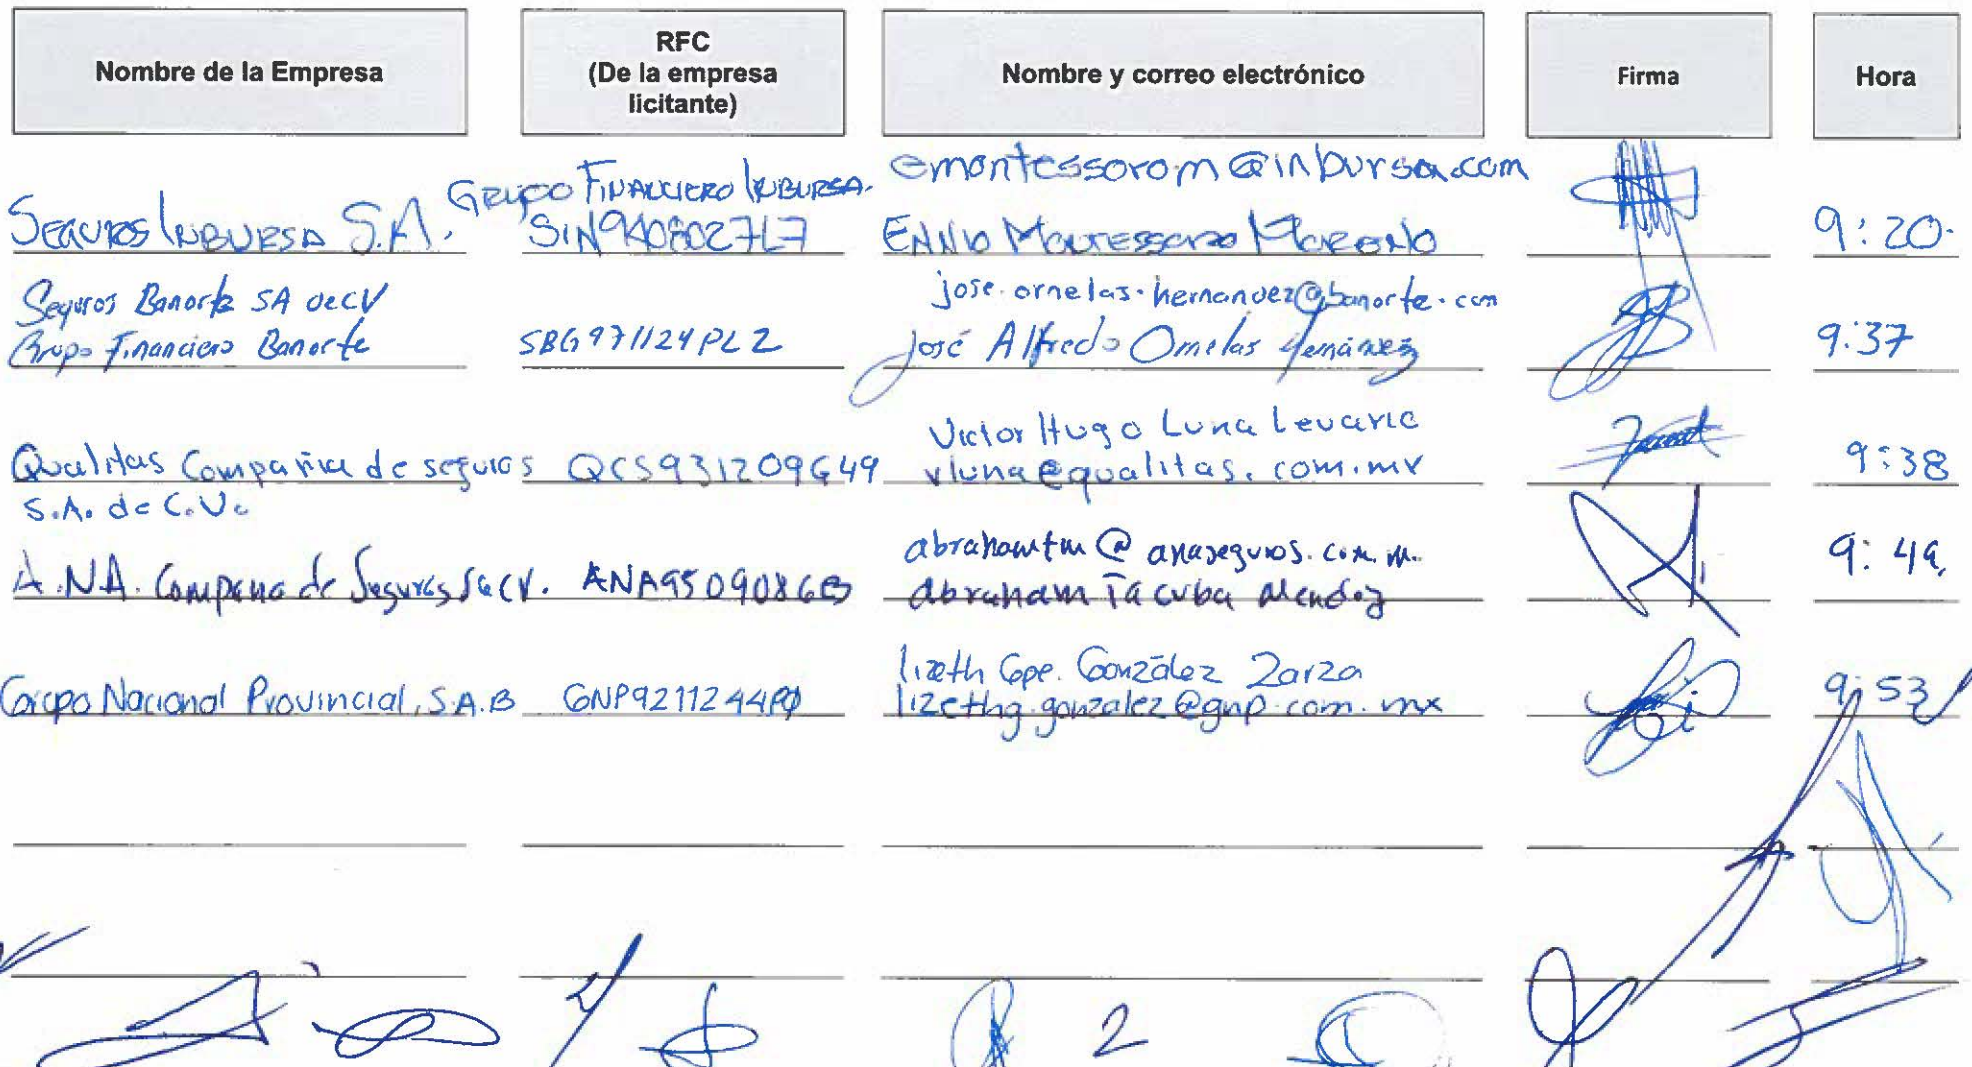 Nombre de la Empresa
RFC
(De la empresa
licitante)
Nombre y correo electrónico
Firma
Hora
SEGUROS INBURSA S.A. GRUPO FINANCIERO INBURSA.
SIN9408027L7
emontessorom@inbursa.com
ENNIO MONTESSORO MORENO
9:20.
Seguros Banorte SA de CV
Grupo Financiero Banorte
SBG971124PL2
jose.ornelas.hernandez@banorte.com
José Alfredo Ornelas Hernández
9:37
Qualitas Compañia de seguros
S.A. de C.V.
QCS931209G49
Victor Hugo Luna Levario
vluna@qualitas.com.mx
9:38
A.N.A. Compañia de Seguros SaCV.
ANA9509086E3
abrahamtm@anaseguros.com.m.
abraham Tacuba Mendoz
9:49.
Grupo Nacional Provincial, S.A.B
GNP9211244P0
lizeth Gpe. González Zarza
lizethg.gonzalez@gnp.com.mx
9:53
2